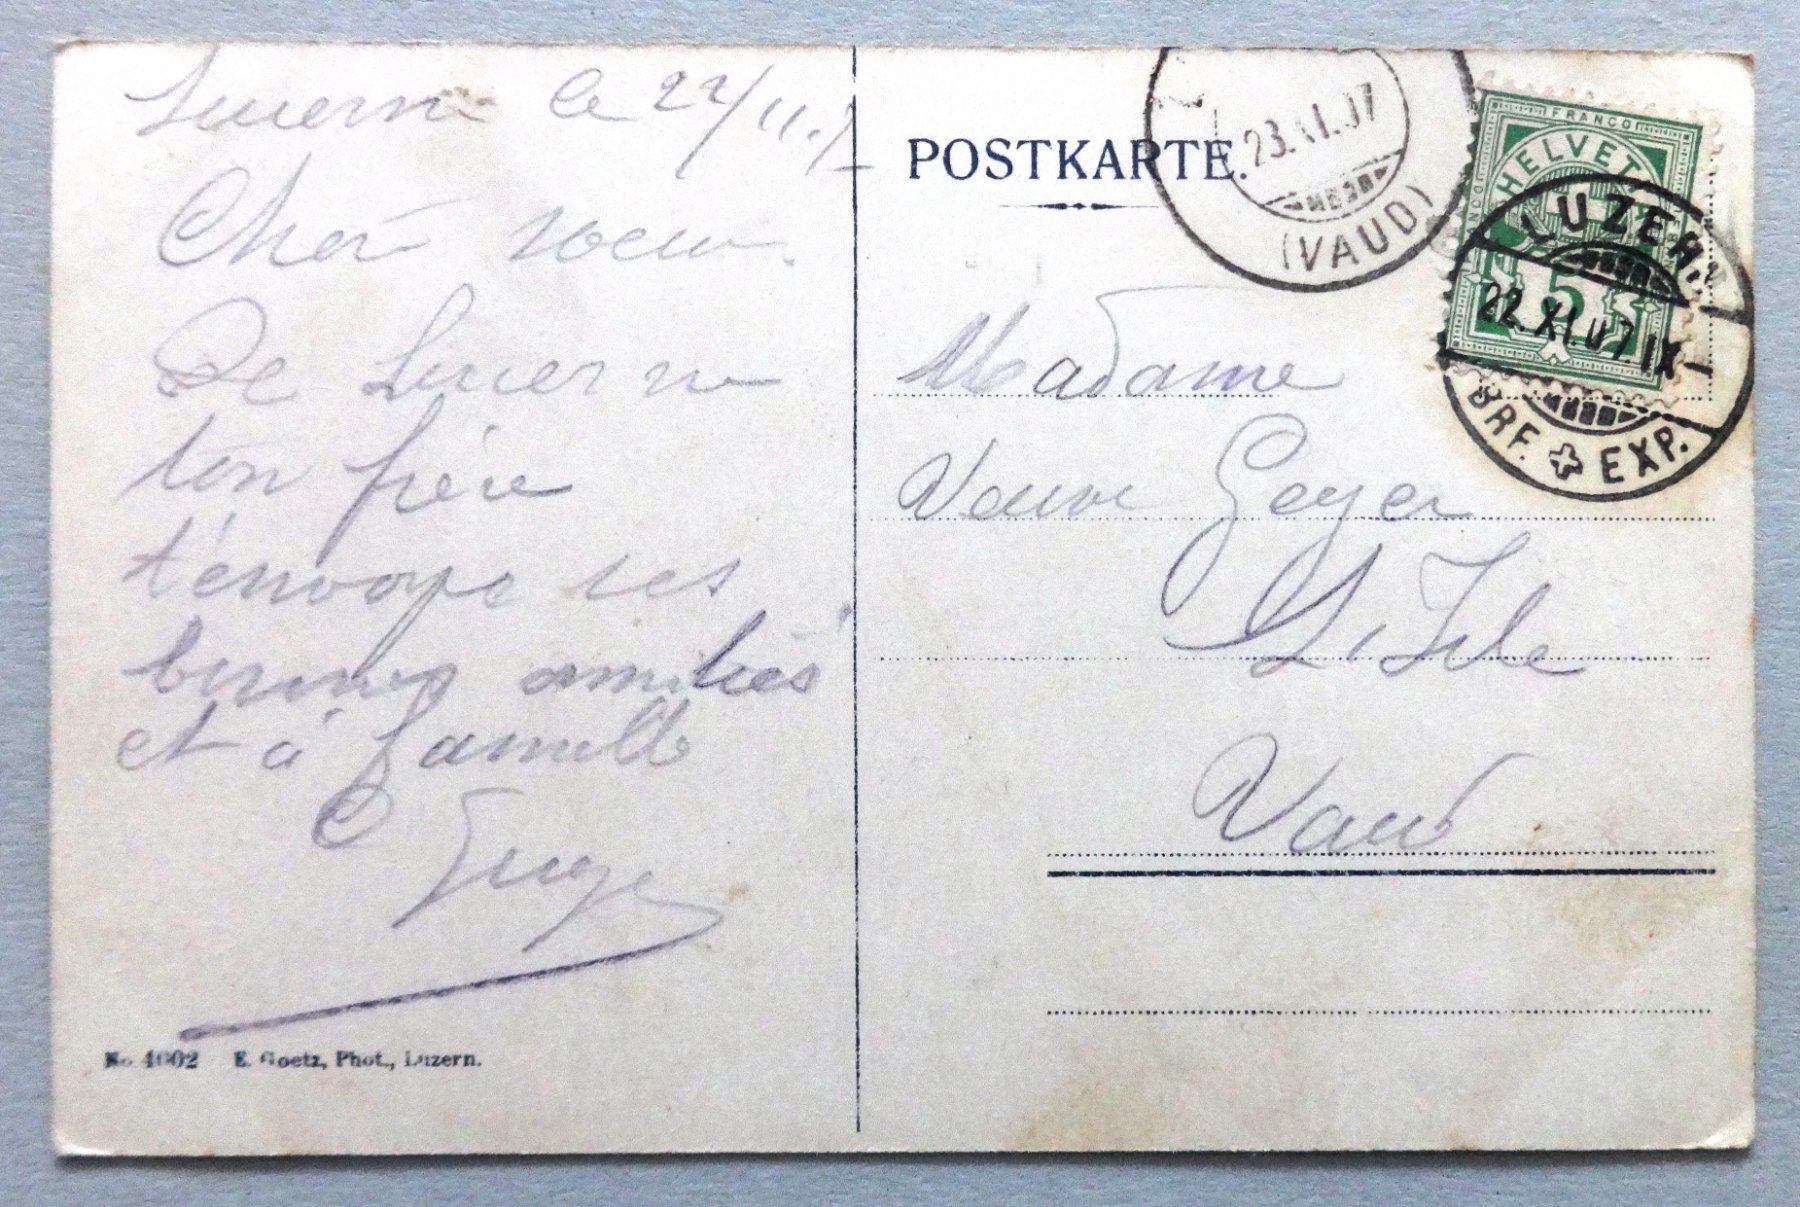 Lucerne le 22/11.7
Chère soeur
De Lucerne
ton frère
t'envoye ses
bonnes amitiés
et à famille
No. 4002 E. Goetz, Phot., Luzern.
POSTKARTE.
23.XI.07
(VAUD)
FRANCO
HELVETI
5
LUZERN
22.XI.07.IX
BRF. EXP.
Madame
Veuve Geyer
L'Isle
Vaud